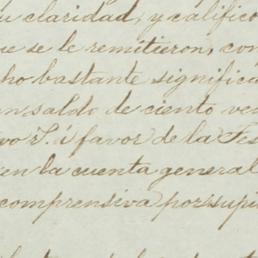 su claridad, y calificó
que se le remitieron, con
cho bastante significa
un saldo de ciento ve
vos S. á favor de la Tes
en la cuenta general
comprensiva por supu